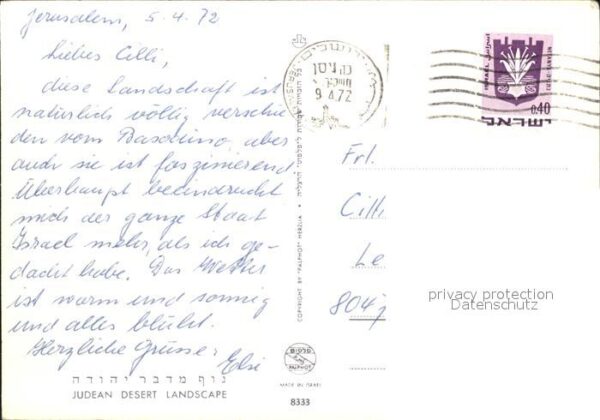 Jerusalem, 5.4.72
Liebes Cilli,
diese Landschaft ist
natürlich völlig verschie
den vom aber
auch sie ist faszinierend.
Überhaupt beeindruckt
mich der ganze Staat
Israel mehr, als ich ge-
dacht habe. Das Wetter
ist warm und sonnig
und alles blüht.
Herzliche Grüsse, Elsi
נוף מדבר יהודה
JUDEAN DESERT LANDSCAPE
COPYRIGHT BY "PALPHOT" HERZLIA
פלפוט
PALPHOT
MADE IN ISRAEL
8333
ירושלים
9.4.72
ISRAEL
0.40
ישראל
Frl.
Cilli
Le
8047
privacy protection
Datenschutz